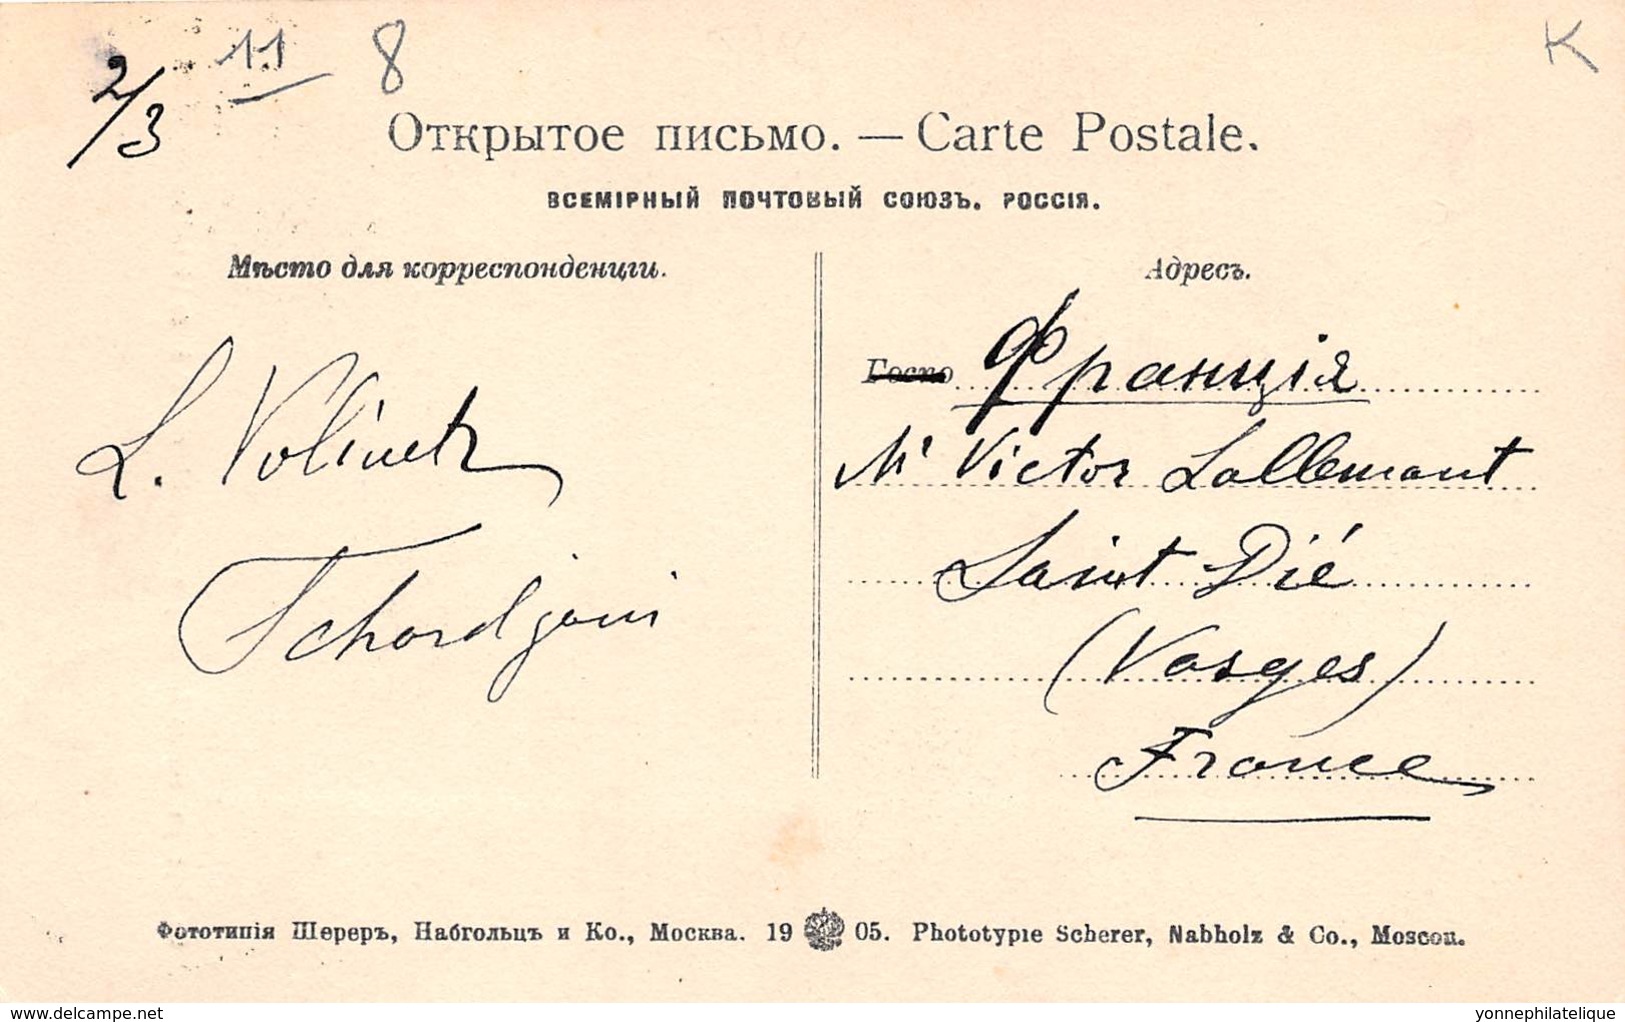 2/3 11 8 K
Открытое письмо. — Carte Postale.
ВСЕМІРНЫЙ ПОЧТОВЫЙ СОЮЗЪ. РОССІЯ.
Мѣсто для корреспонденціи.
Адресъ.
L. Volinetz
Tchardjoui
Госпо
Франція
Mr Victor Lallemant
Saint Dié
(Vosges)
France
Фототипія Шереръ, Набгольцъ и Ко., Москва. 19 05. Phototypie Scherer, Nabholz & Co., Moscou.
delcampe.net
yonnephilatelique